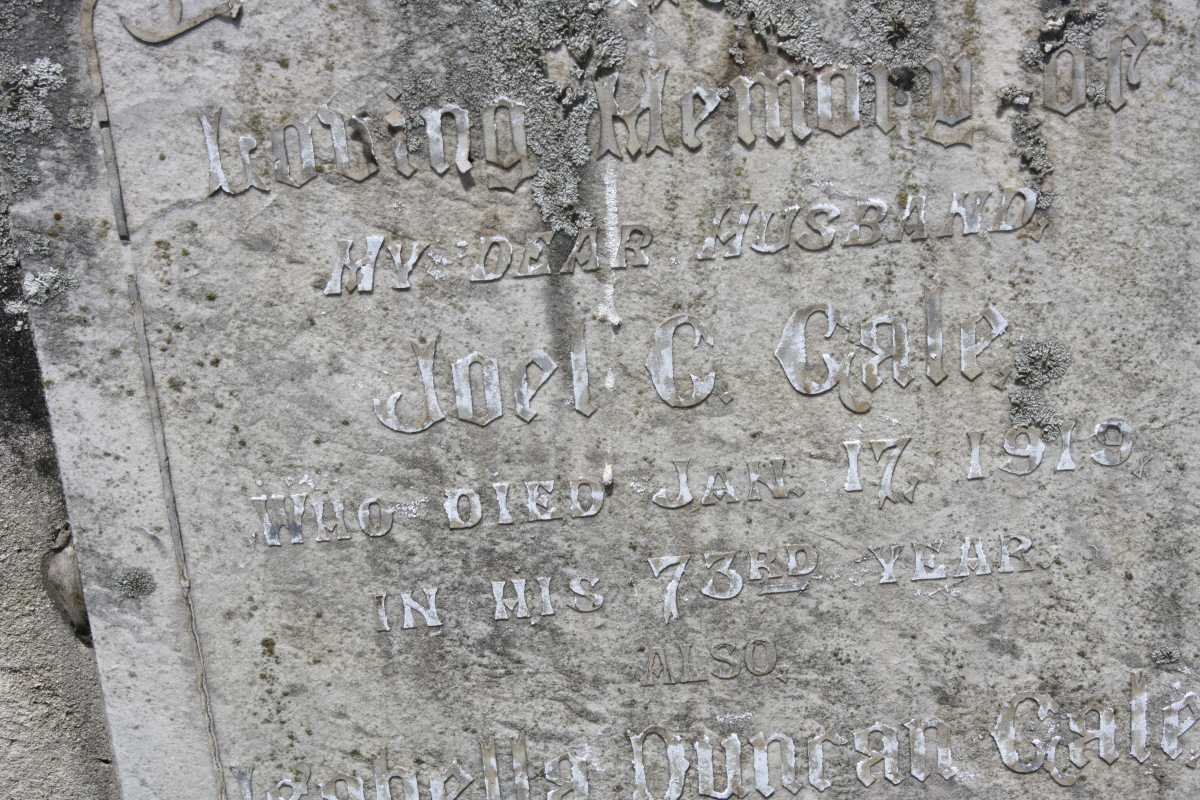 Loving Memory of
MY DEAR HUSBAND
Joel C. Gale.
WHO DIED JAN. 17 1919
IN HIS 73RD YEAR.
ALSO
Isabella Duncan Gale